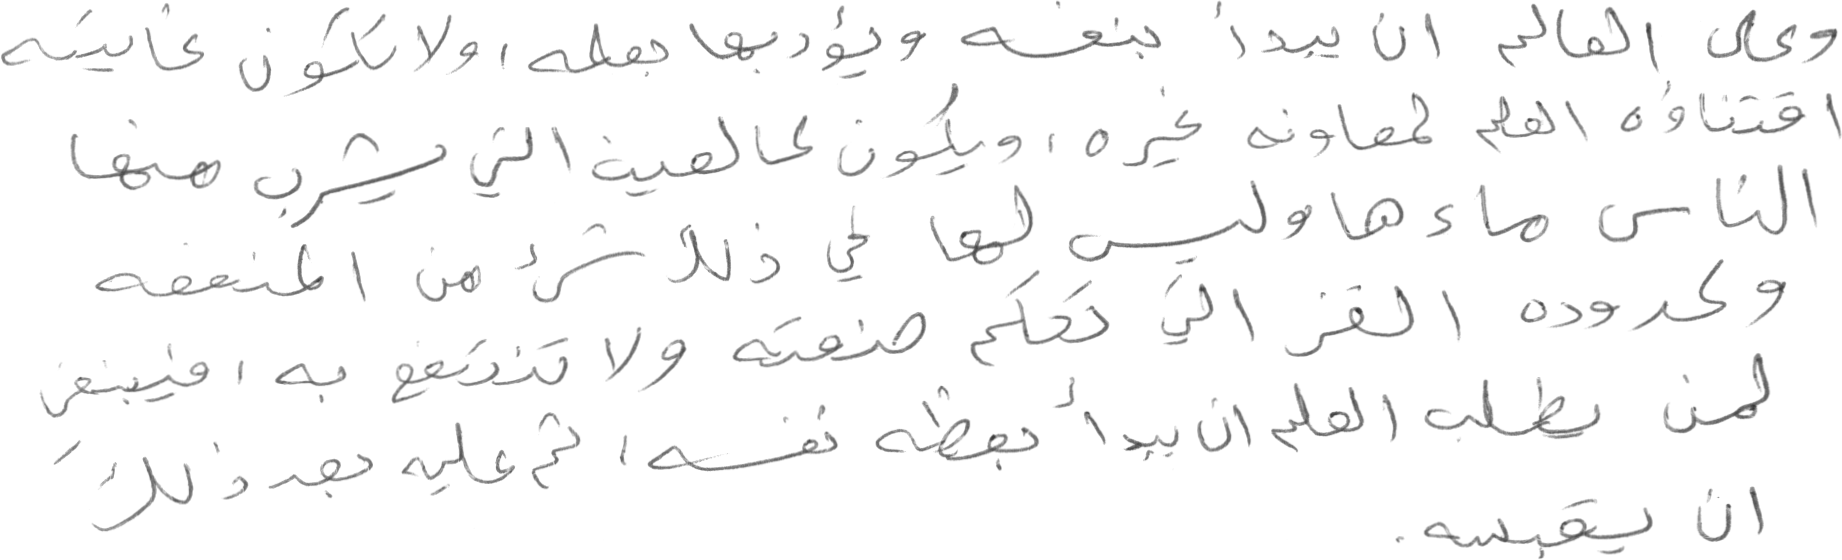 وعلى العالم ان يبدأ بنفسه ويؤدبها بعلمه، ولا تكون غايته
اقتناؤه العلم لمعاونه غيره، ويكون كالعين التي يشرب منها
الناس ماءها وليس لها في ذلك شئ من المنفعه
وكدوده القز التي تحكم صنعته ولا تنتفع به، فينبغي
لمن يطلب العلم ان يبدأ بعظه نفسه، ثم عليه بعد ذلك
ان يقبسه.